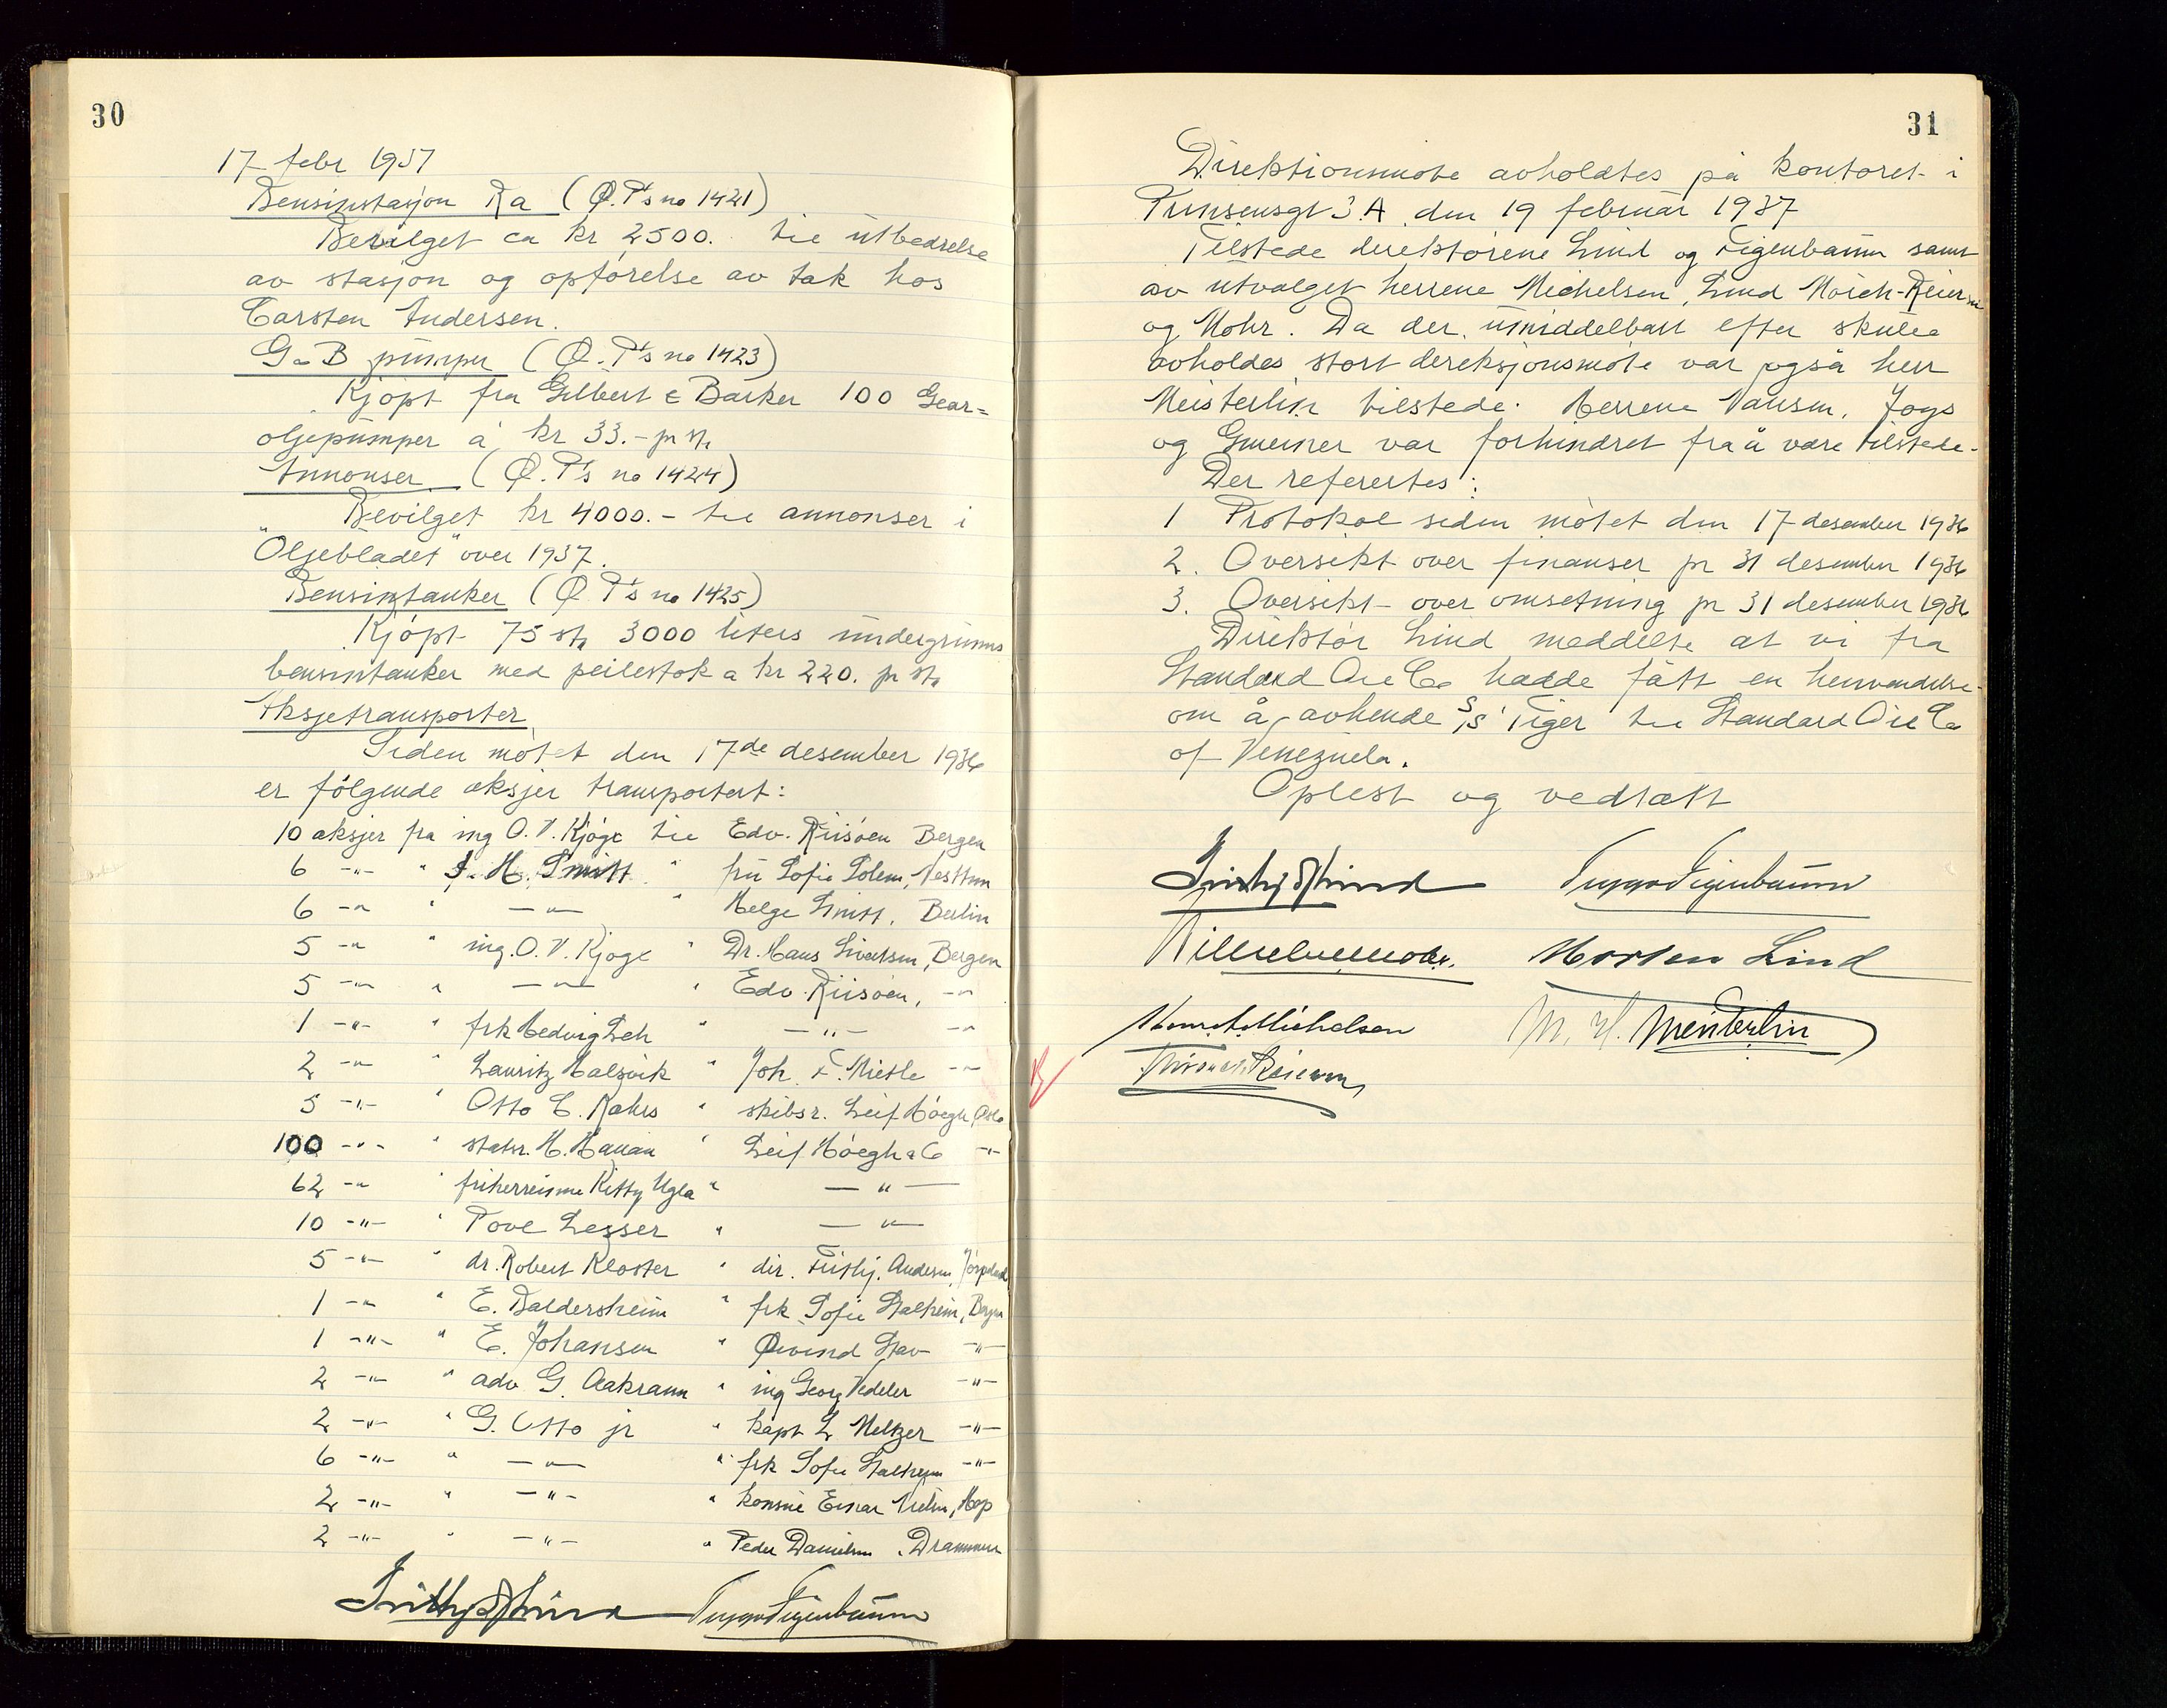 30
17 febr 1937
Bensinstasjon Ra (Ø.P's no 1421)
Bevilget ca kr 2500. til utbedrelse
av stasjon og opførelse av tak hos
Carsten Andersen.
G & B pumper (Ø.P's no 1423)
Kjøpt fra Gilbert & Barker 100 Gear=
oljepumper à kr 33.- pr st.
Annonser (Ø.P's no 1424)
Bevilget kr 4000.- til annonser i
"Oljebladet" over 1937.
Bensintanker (Ø.P's no 1425)
Kjøpt 75 st 3000 liters undergrunns
bensintanker med peilestok a kr 220. pr st.
Aksjetransporter
Siden møtet den 17de desember 1936
er følgende aksjer transportert:
10 aksjer fra ing O.V. Kjøge til Edv. Riisøen Bergen
6 -"- " J. H. Smitt " fru Sofie Solem, Nesttun
6 -"- " -"- " Helge Smitt, Berlin
5 -"- " ing. O.V. Kjøge " Dr. Hans Sivertsen, Bergen
5 -"- " -"- " Edv. Riisøen, -"-
1 -"- " frk Hedvig Leh " -"- -"-
2 -"- " Lauritz Halsvik " Joh. F. Mietle -"-
5 -"- " Otto C. Rahrs " skibsr. Leif Høegh, Oslo
100 -"- " statsr. H. Hauan " Leif Høegh & Co -"-
62 -"- " friherreinne Kitty Ugla " -"-
10 -"- " Tove Lesser " -"-
5 -"- " dr. Robert Kloster " dir. Frithj. Andersen, Jørpeland
1 -"- " E. Baldersheim " frk Sofie Stalheim, Bergen
1 -"- " E. Johansen " Øivind Stav -"-
2 -"- " adv G. Aakrann " ing Georg Vedeler -"-
2 -"- " G. Otto jr " kapt L Meltzer -"-
6 -"- " -"- " frk Sofie Stalheim -"-
2 -"- " -"- " konsul Einar, Hop
2 -"- " -"- " Peder Danielsen, Drammen
Frithjof Lind Trygve Figenbaum
31
Direktionsmøte avholdtes på kontoret i
Prinsensgt 3.A. den 19 februar 1937
Tilstede direktørene Lind og Figenbaum samt
av utvalget herrene Michelsen, Lind Mörch-Reiersen
og Mohr. Da der umiddelbart efter skulle
avholdes stort direksjonsmøte var også herr
Meisterlin tilstede. Herrene Nansen, Joys
og Gmeiner var forhindret fra å være tilstede.
Der refertes:
1 Protokol siden møtet den 17 desember 1936
2. Oversikt over finanser pr 31 desember 1936
3. Oversikt over omsetning pr 31 desember 1936
Direktør Lind meddelte at vi fra
Standard Oil Co hadde fått en henvendelse
om å avhende S/S Tiger til Standard Oil Co
of Venezuela.
Oplest og vedtatt
Frithjof Lind Trygve Figenbaum
Wilhelm Mohr. Morten Lind
Michelsen M. H. Meisterlin
Reiersen